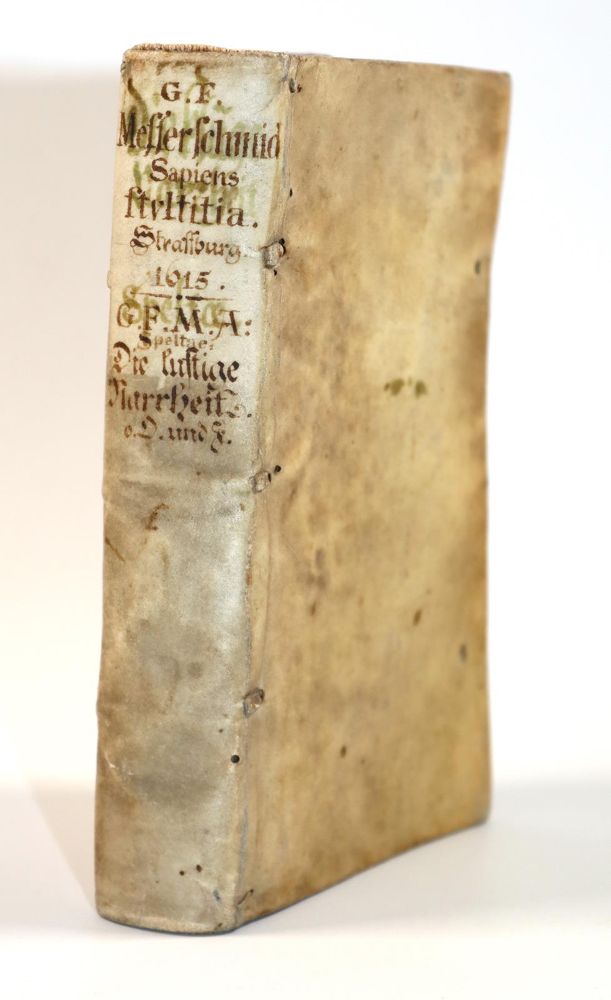 G. F.
Messerschmid
Sapiens
stvltitia.
Strassburg.
1615.
G. F. M. A:
Speltae:
Die lustige
Narrheit
o. O. und J.